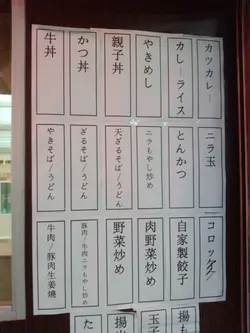 カツカレー
カレーライス
やきめし
親子丼
かつ丼
牛丼
ニラ玉
とんかつ
ニラもやし炒め
天ざるそば/うどん
ざるそば/うどん
やきそば/うどん
コロッケ
自家製餃子
肉野菜炒め
野菜炒め
豚肉/牛肉ニラもやし炒め
牛肉/豚肉生姜焼